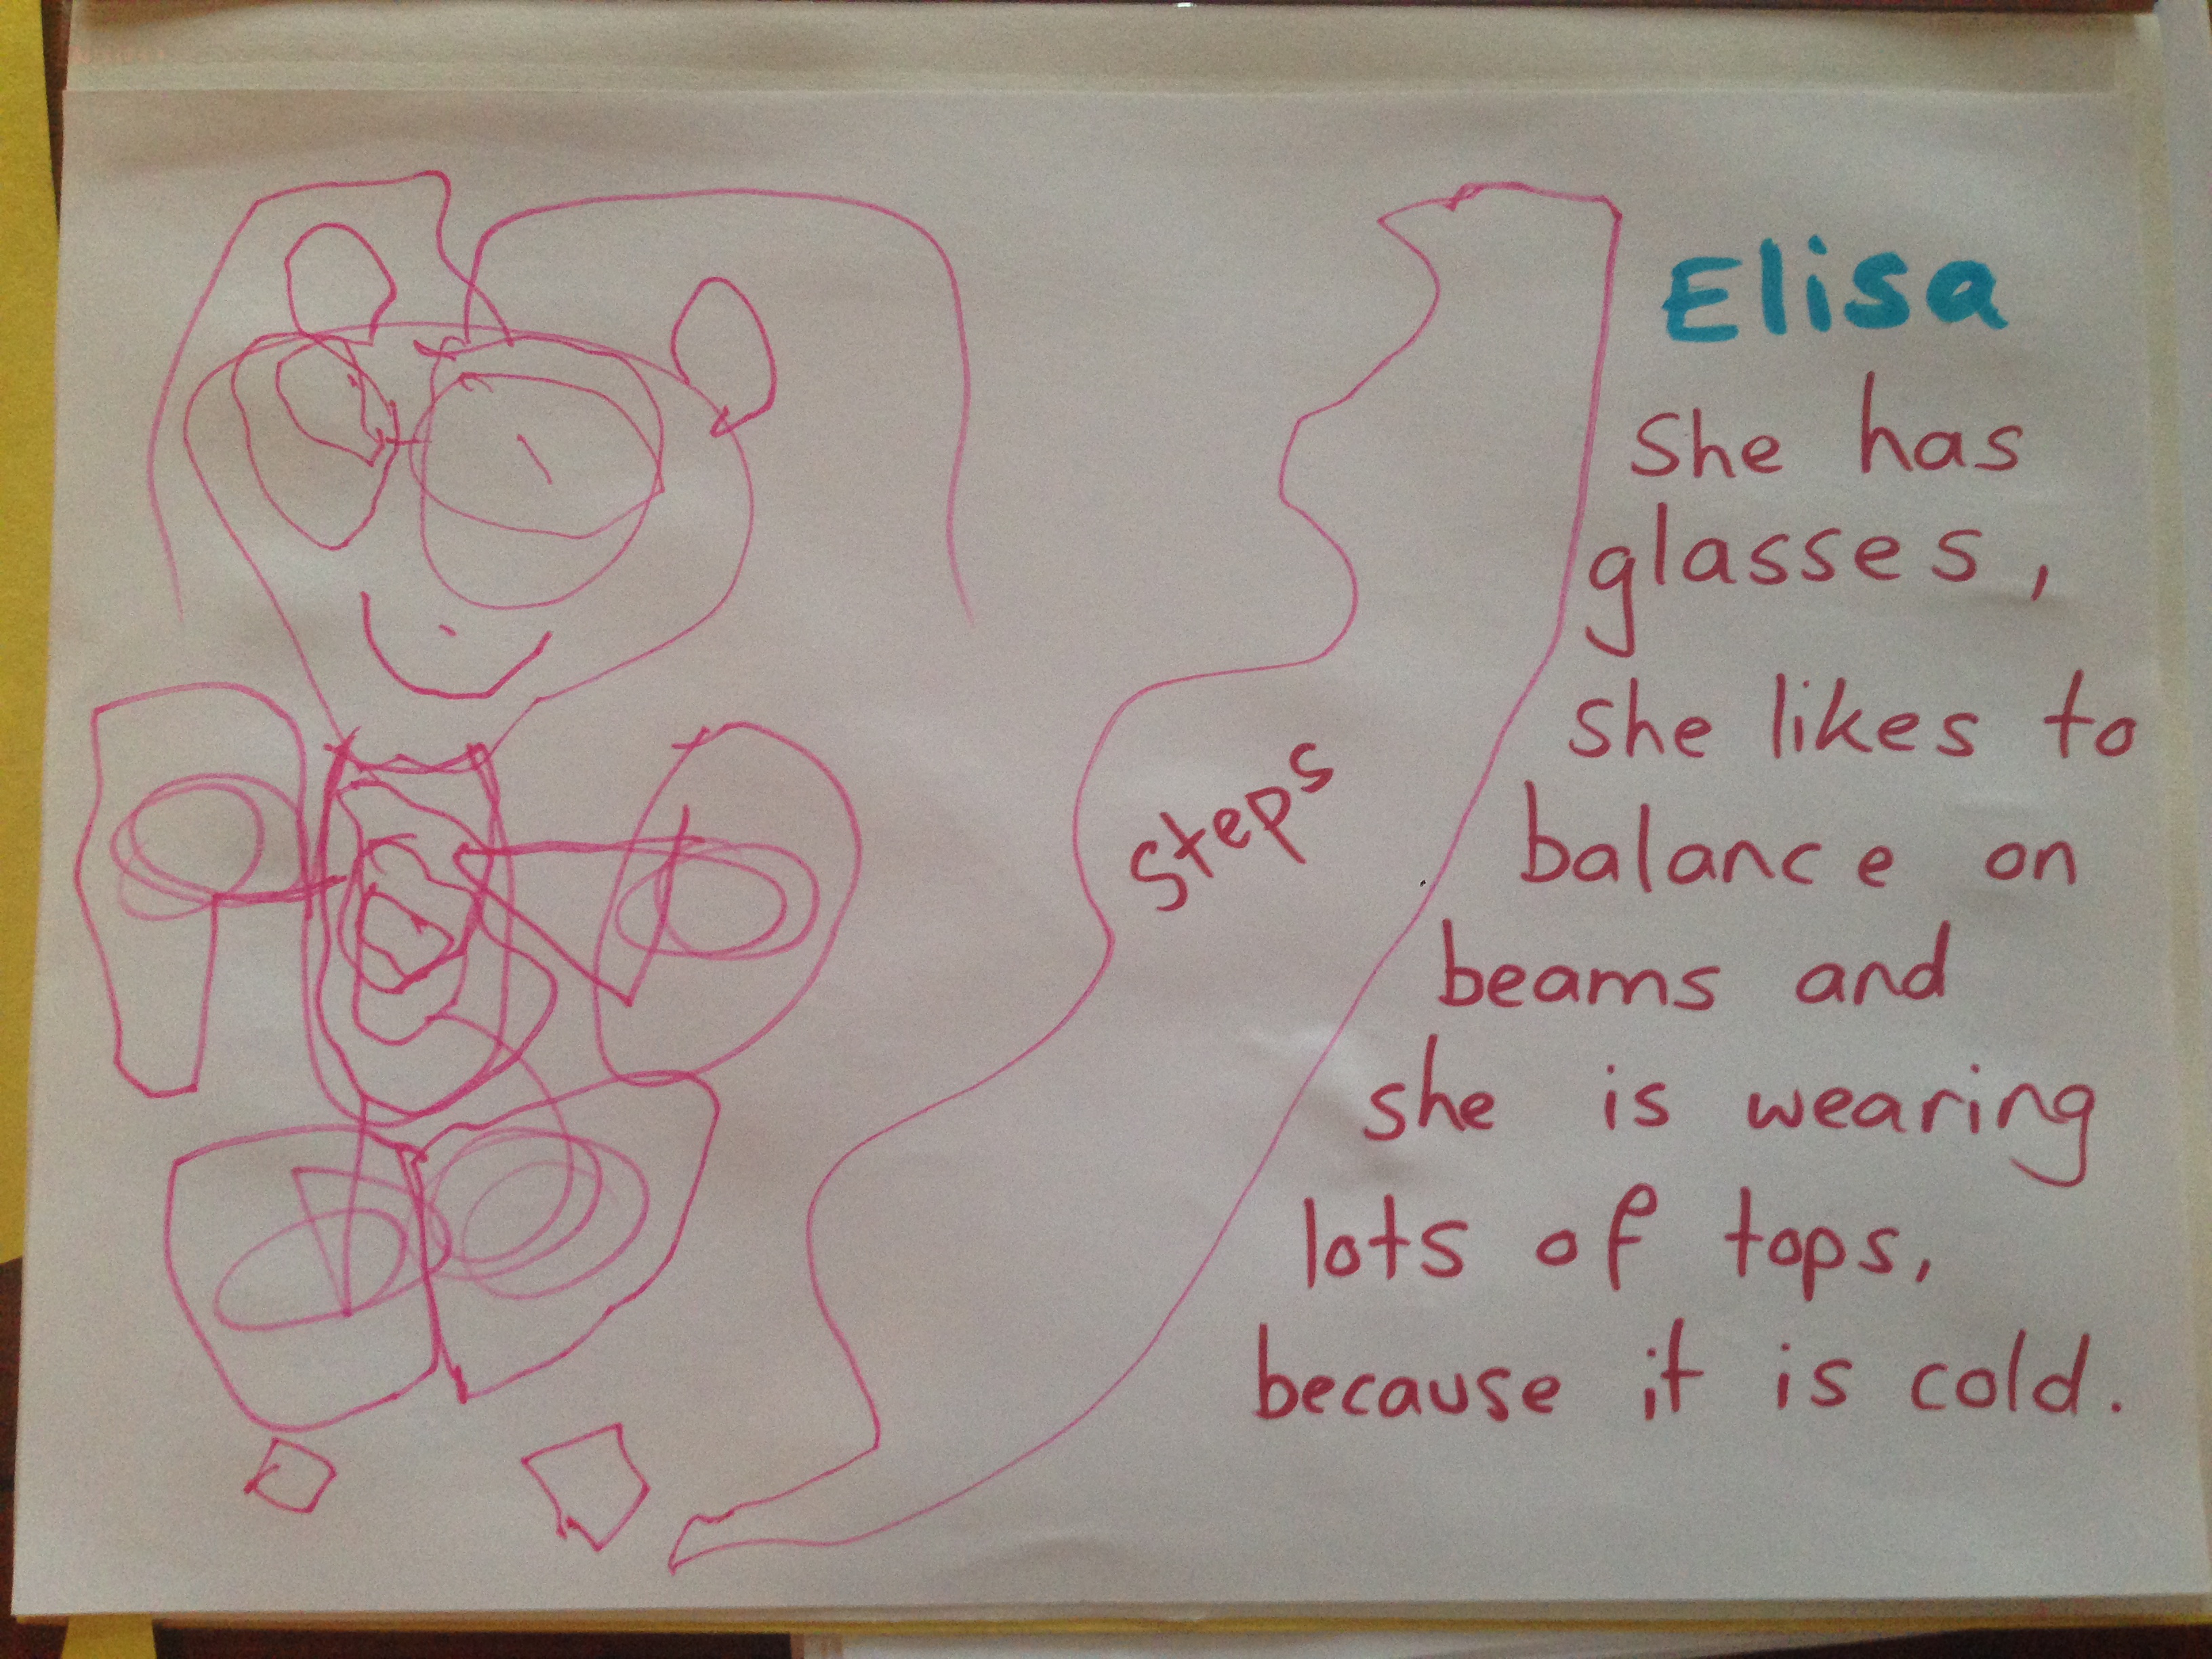 Elisa
She has
glasses,
she likes to
balance on
beams and
she is wearing
lots of tops,
because it is cold.
Steps